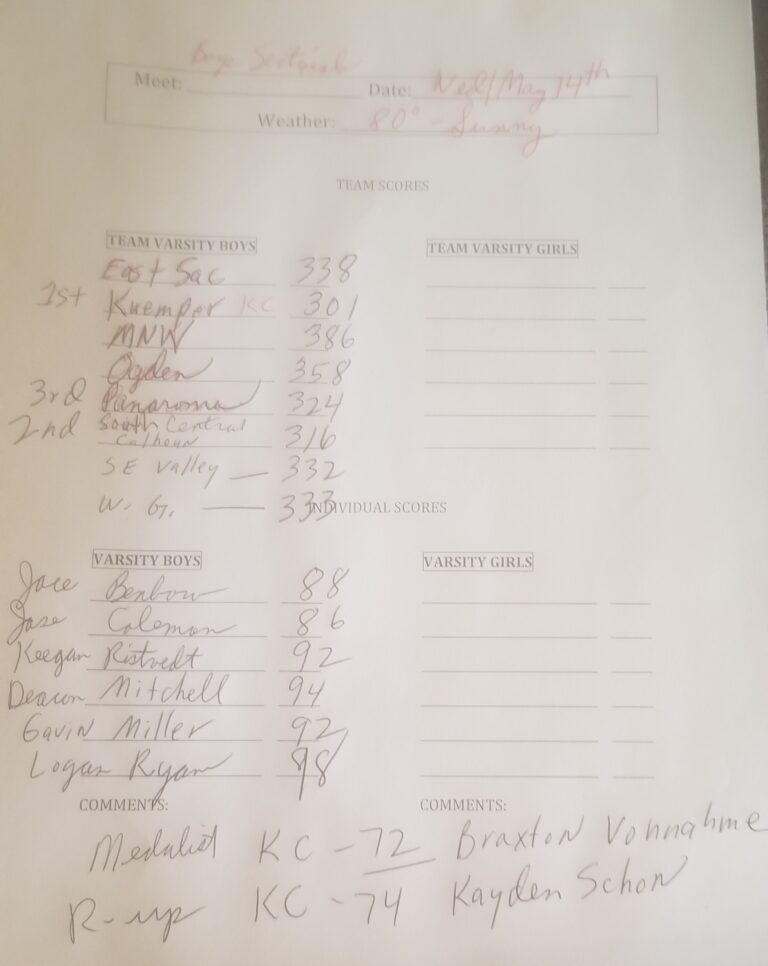 Meet: Boys Sectionals Date: Wed/May 14th
Weather: 80° - Sunny
TEAM SCORES
TEAM VARSITY BOYS
East Sac 338
1st Kuemper KC 301
MNW 386
Ogden 358
3rd Panaroma 324
2nd South Central Calhoun 316
SE Valley — 332
W. G. — 333
TEAM VARSITY GIRLS
INDIVIDUAL SCORES
VARSITY BOYS
Jace Benbow 88
Jase Coleman 86
Keegan Ristvedt 92
Deacon Mitchell 94
Gavin Miller 92
Logan Ryan 98
VARSITY GIRLS
COMMENTS:
COMMENTS:
Medalist KC - 72 Braxton Vonnahme
R-up KC - 74 Kayden Schon